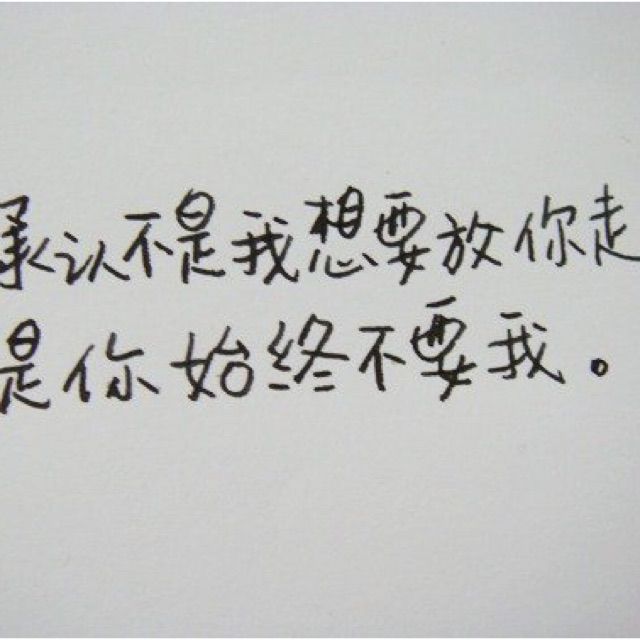 承认不是我想要放你走
是你始终不要我。